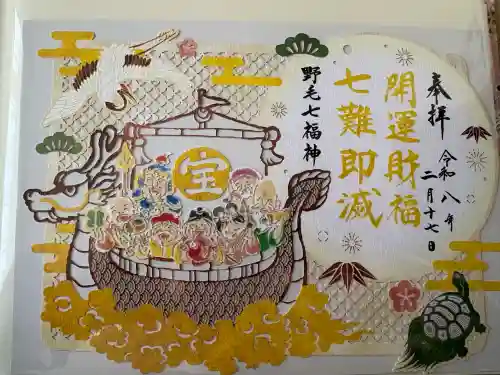 奉拝
令和八年
二月十七日
開運財福
七難即滅
野毛七福神
宝